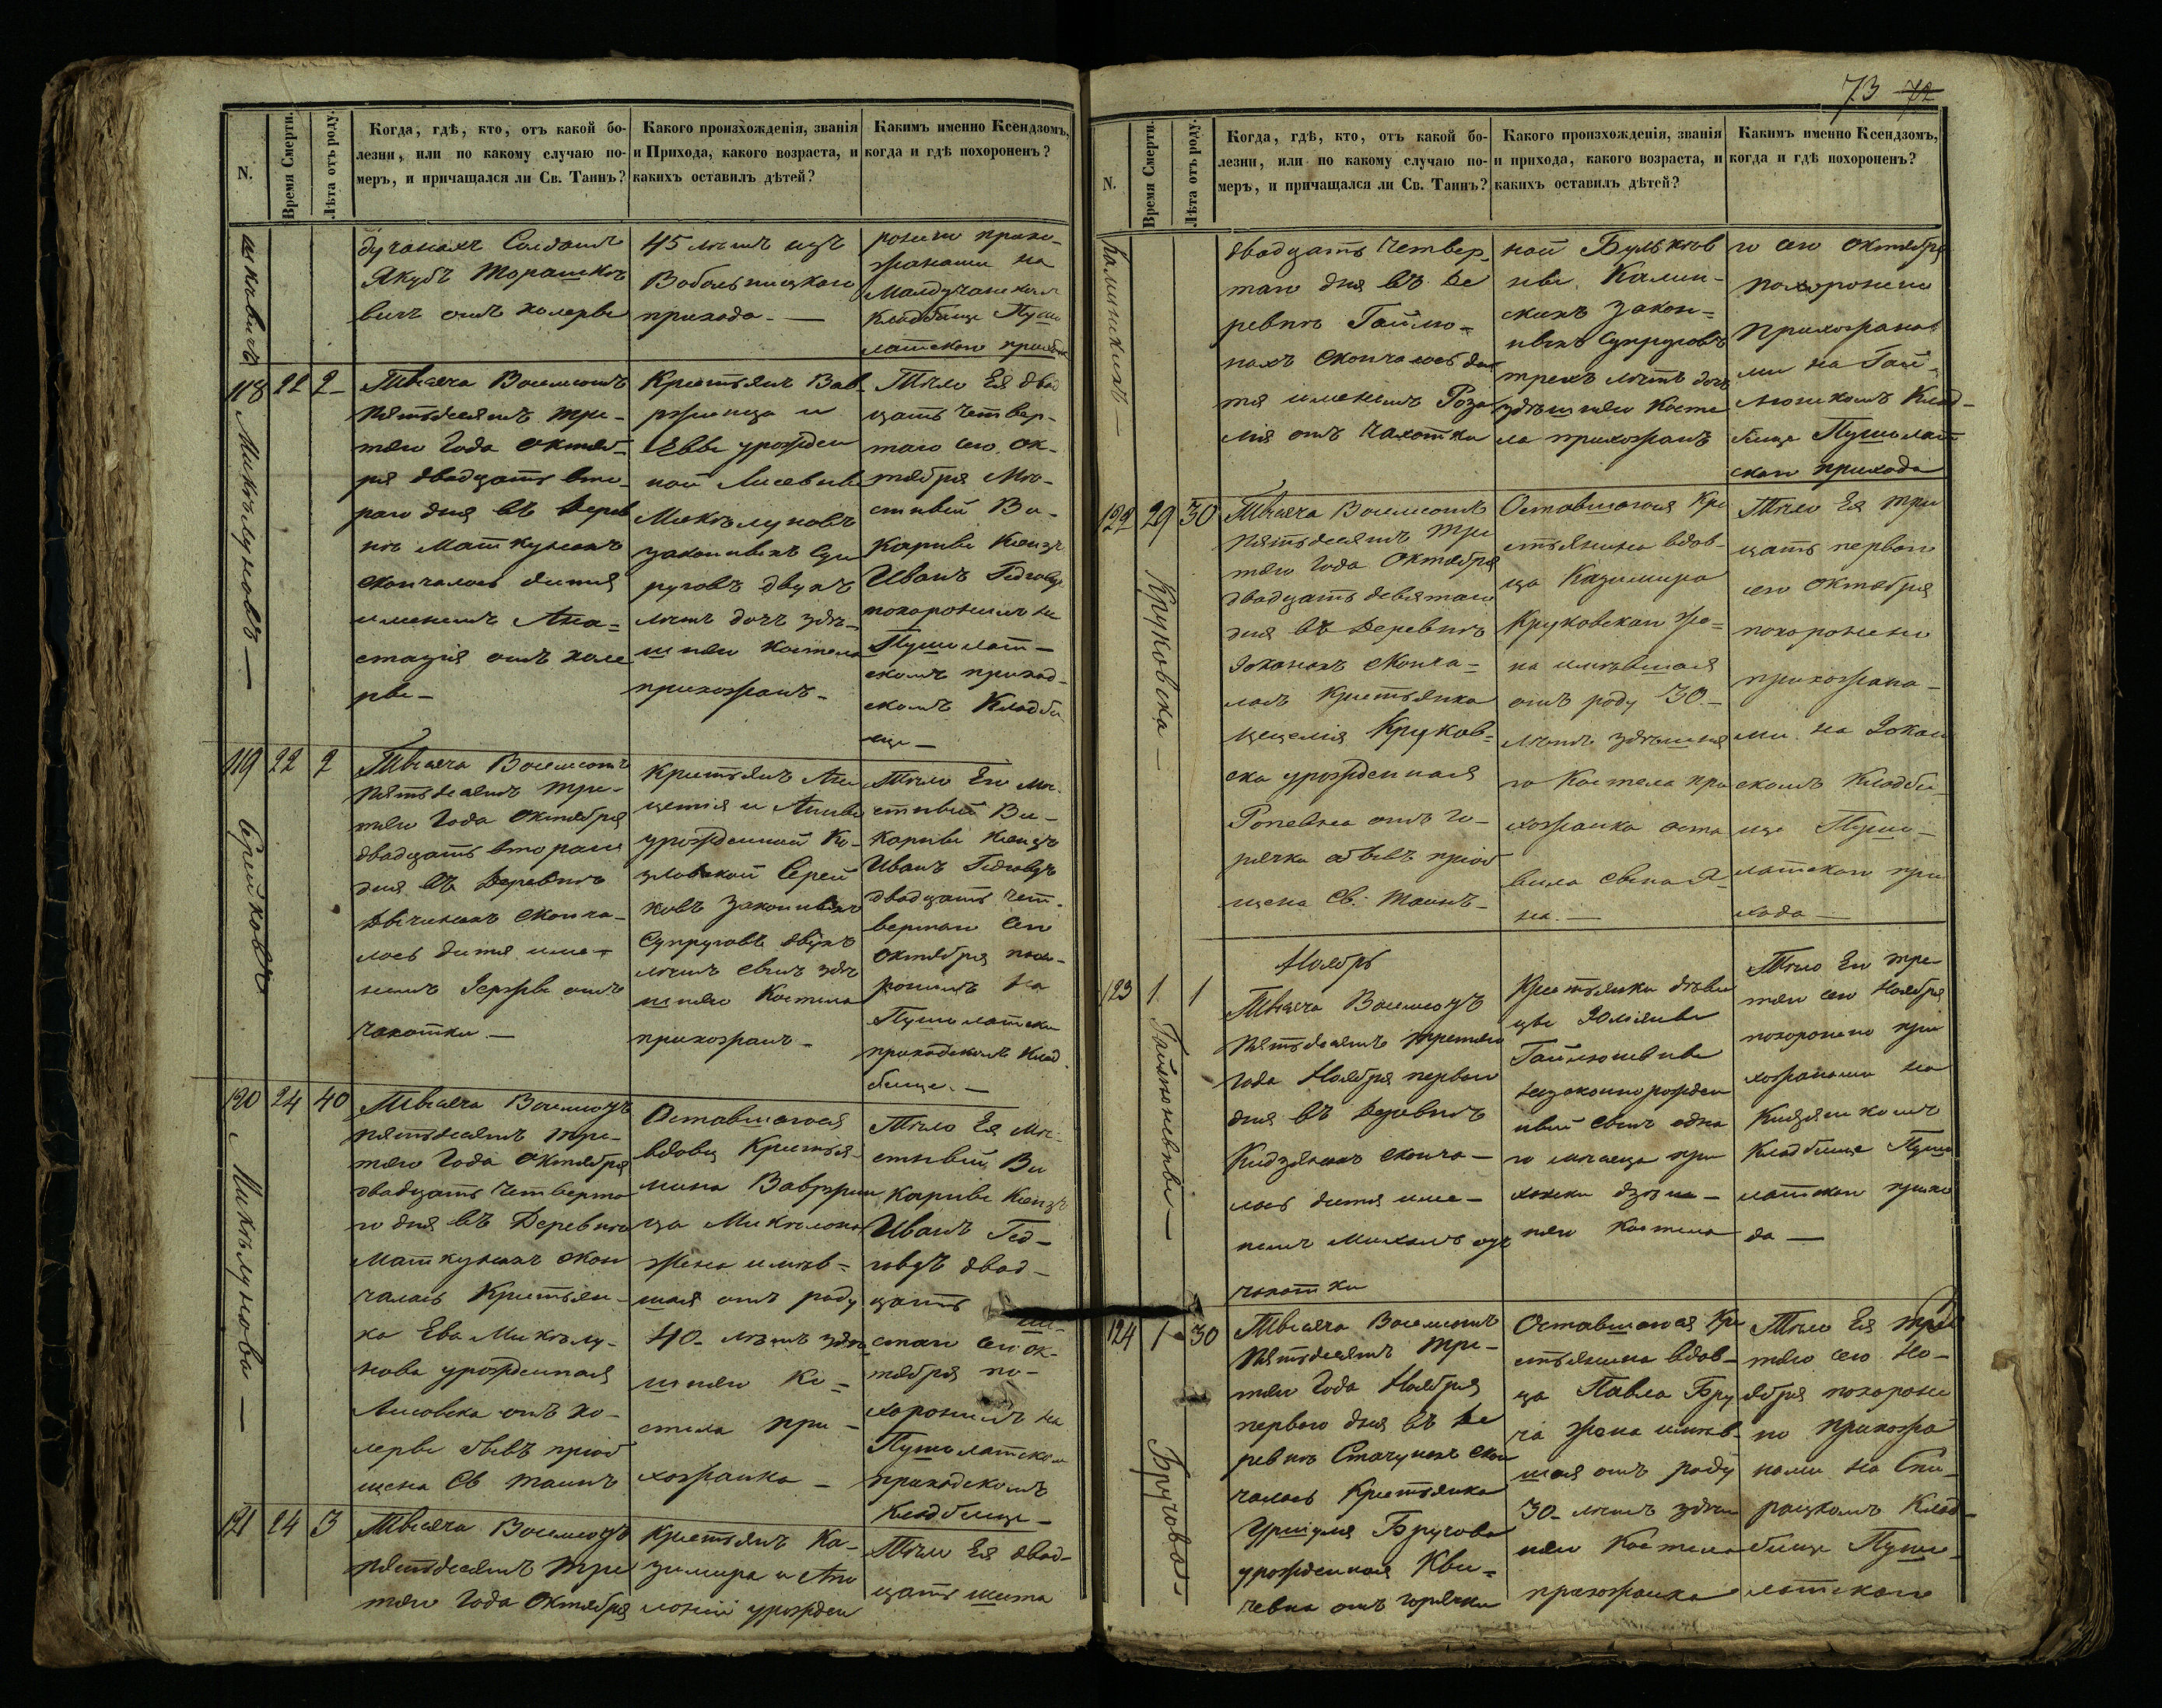 73 72
N.
Время Смерти.
Лѣта отъ роду.
Когда, гдѣ, кто, отъ какой бо-
лезни, или по какому случаю по-
меръ, и причащался ли Св. Таинъ?
Какого произхожденія, званія
и Прихода, какого возраста, и
какихъ оставилъ дѣтей?
Какимъ именно Ксендзомъ,
когда и гдѣ похороненъ?
Солдатъ
Якубъ
вичъ отъ холеры
45 лѣтъ изъ
Вобольницкаго
прихода. —
ронено прихо-
жанами на
Кладбище Пушо
латскаго
118
22
2
Микѣлуновъ —
Тысяча Восемсотъ
пятьдесятъ тре-
тяго Года Октяб-
ря двадцать вто-
раго дня въ Дерев
нѣ Маткунахъ
скончалось дитя
именемъ Ана=
стазія отъ холе
ры —
Крестьянъ Вав
ржинца и
Евы урожден
ной
Микѣлуновъ
законныхъ Суп
руговъ двухъ
лѣтъ дочь здѣ-
шняго костела
прихожанъ —
Тѣло Ея двад
цать четвер-
таго сего Ок-
тября Мѣ-
стный Ви-
карный Ксендзъ
Иванъ
похоронилъ на
Пушолат-
скомъ приход-
скомъ Кладби
ще —
119
22
2
Серейковъ
Тысяча Восемсотъ
пятьдесятъ тре-
тяго Года Октября
двадцать втораго
дня въ Деревнѣ
сконча-
лось дитя име-
немъ отъ
чахотки. —
Крестьянъ
и Анны
урожденной Ко-
зловской Серей
ковъ законныхъ
Супруговъ двухъ
лѣтъ сынъ здѣ
шняго Костела
прихожанъ —
Тѣло Его Мѣ-
стный Ви-
карный Ксендзъ
Иванъ
двадцать чет-
вертаго Сего
Октября похо-
ронилъ на
Пушолатском
приходскомъ Клад
бище. —
120
24
40
Микѣлунова —
Тысяча Восемсотъ
пятьдесятъ тре-
тяго Года Октября
двадцать четверта
го дня въ Деревнѣ
Маткунахъ скон
чалась Крестьян-
ка Ева Микѣлу-
нова урожденная
Лисовска отъ хо-
леры бывъ пріоб
щена Св Таинъ
Оставшагося
вдовы Крестья-
нина Вавржин
ца Микѣлуна
жена имѣв-
шая отъ роду
40 лѣтъ здѣ
шняго Ко=
стела при-
хожанка —
Тѣло Ея Мѣ-
стный Ви
карный Ксендзъ
Иванъ
двад-
цать ше-
стаго сего Ок-
тября по-
хоронилъ на
Пушолатском
приходскомъ
Кладбище —
121
24
3
Тысяча Восемсотъ
пятьдесятъ тре
тяго Года Октября
Крестьянъ Ка-
зимира и Апо
лоніи урожден
Тѣло Ея двад-
цать шеста
N.
Время Смерти.
Лѣта отъ роду.
Когда, гдѣ, кто, отъ какой бо-
лезни, или по какому случаю по-
меръ, и причащался ли Св. Таинъ?
Какого произхожденія, званія
и прихода, какого возраста, и
какихъ оставилъ дѣтей?
Какимъ именно Ксендзомъ,
когда и гдѣ похороненъ?
Калинскихъ —
двадцать четвер-
таго дня въ Де
ревнѣ Гайлю-
нахъ скончалось ди
тя именемъ Роза
лія отъ чахотки
ной
Калин-
скихъ закон=
ныхъ Супруговъ
трехъ лѣтъ дочь
здѣшняго Косте
ла прихожанъ
го сего Октября
похоронено
Прихожана
ми на Гай-
люнскомъ Клад-
бище Пушолат
скаго прихода
122
29
30
Круковска —
Тысяча Восемсотъ
пятьдесятъ тре
тяго Года Октября
двадцать девятаго
дня въ Деревнѣ
сконча-
лась Крестьянка
Цецелія Круков=
ска урожденная
отъ го-
рячки бывъ пріоб
щена Св. Таинъ —
Оставшагося Кре
стьянина вдов-
ца Казимира
Круковскаго же=
на имѣвшая
отъ роду 30 —
лѣтъ здѣшня
го Костела при
хожанка оста
вила сына
на. —
Тѣло Ея три
цать перваго
сего Октября
похоронено
прихожана-
ми на
скомъ Кладби
ще Пушо-
латскаго при
хода —
Ноябрь
123
1
1
Гайлюневны —
Тысяча Восемсотъ
пятьдесятъ третяго
Года Ноября перваго
дня въ Деревнѣ
сконча-
лось дитя име-
немъ Михалъ отъ
чахотки
Крестьянки дѣви
цы Юліянны
Гайлюневны
незаконнорожден
ный сынъ одна
го мѣсяца при
хожанки здѣш-
няго Костела
Тѣло Его тре-
тяго сего Ноября
похоронено при
хожанами на
Кладбище Пушо
латскаго прихо
да —
124
1
30
Бручова —
Тысяча Восемсотъ
пятьдесятъ тре-
тяго Года Ноября
перваго дня въ Де
ревнѣ скон
чалась Крестьянка
Уршуля Бручова
урожденная Кви=
чевна отъ горячки
Оставшагося Кре
стьянина вдов-
ца Павла Бру
ча жена имѣв-
шая отъ роду
30 лѣтъ здѣш
няго Костела
прихожанка
Тѣло Ея тре
тяго сего Но-
ября похороне
но прихожа
нами на
Клад-
бище Пушо-
латскаго